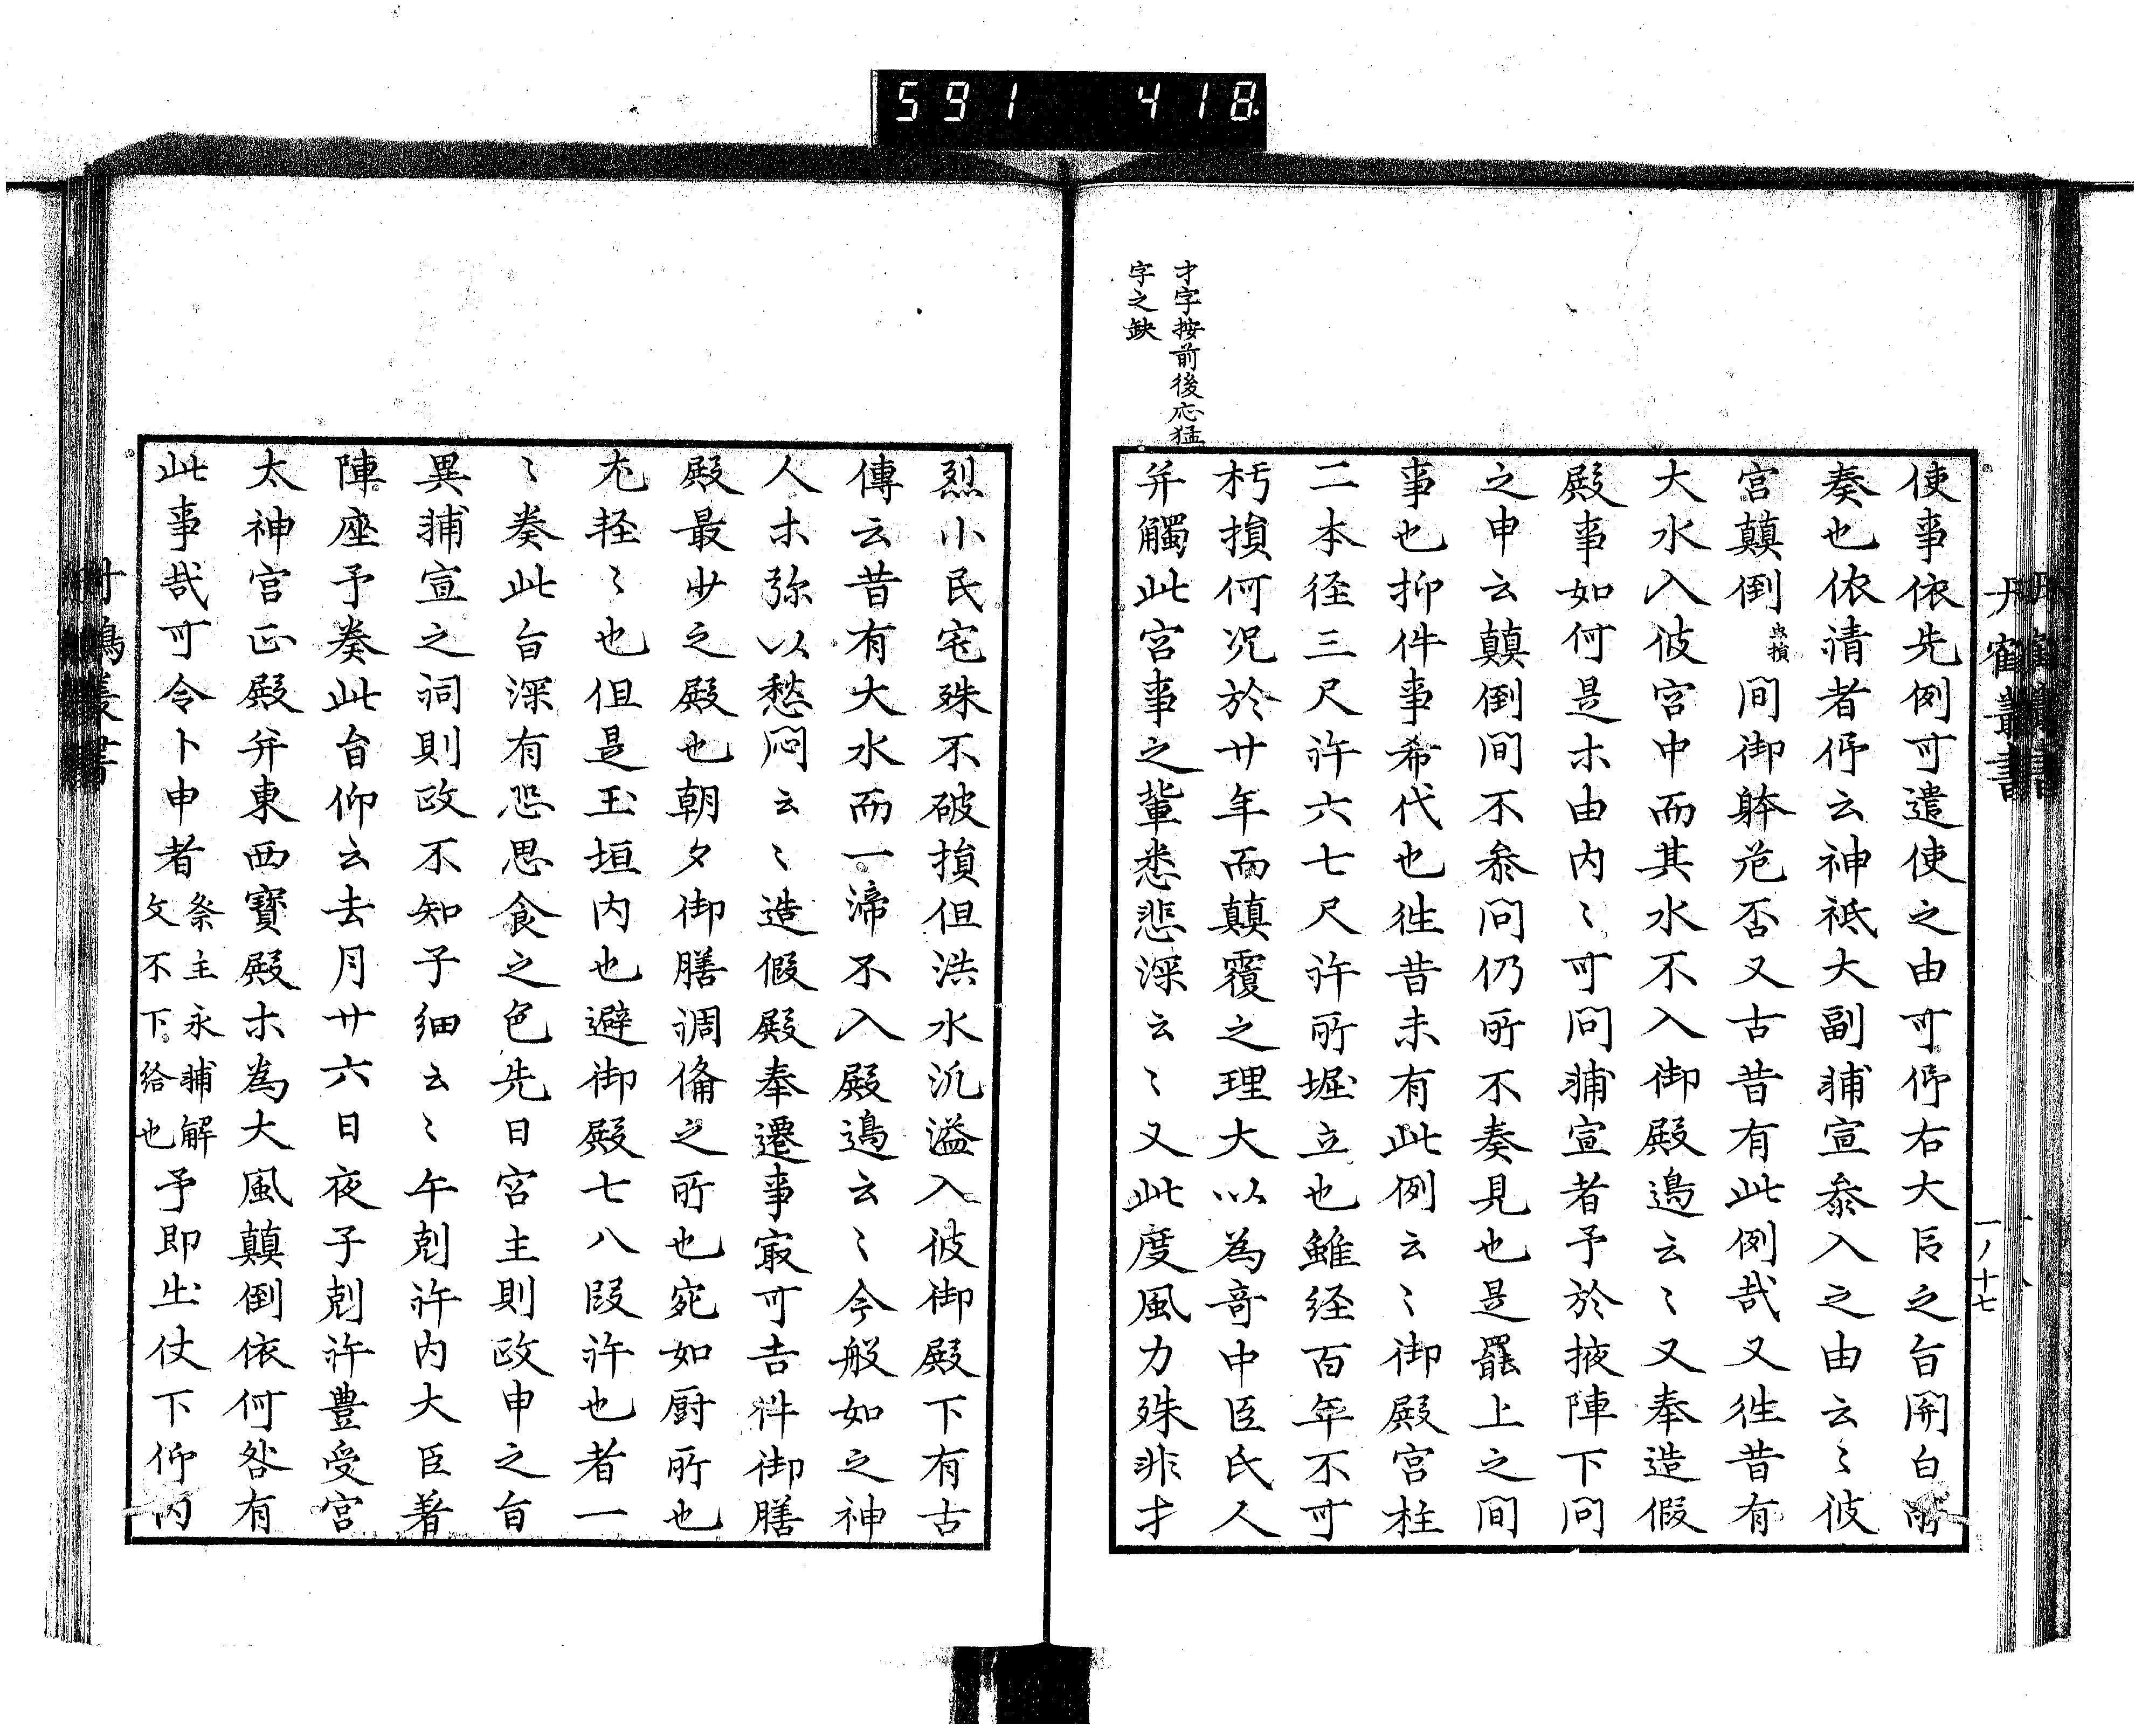 591 418
才字按前後応猛
字之缺
使事依先例可遣使之由可仰右大臣之旨関白
奏也依請者仰云神祇大副輔宣参入之由云々彼
宮顛倒虫損間御躰危否又古昔有此例哉又徃昔有
大水入彼宮中而其水不入御殿邊云々又奉造假
殿事如何是木由内々可問輔宣者予於掖陣下問
之申云顛倒間不参問仍所不奏見也是罷上之間
事也抑件事希代也徃昔未有此例云々御殿宮柱
二本径三尺許六七尺許所堀立也雖経百年不可
朽損何况於廿年而顛覆之理大以為奇中臣氏人
并觸此宮事之輩悉悲深云々又此度風力殊非才
烈小民宅殊不破損但洪水汎溢入彼御殿下有古
傳云昔有大水而一渧不入殿邊云々今般如之神
人木弥以愁悶云々造假殿奉遷事寂可吉件御膳
殿最少之殿也朝夕御膳調俻之所也宛如厨所也
尤軽々也但是玉垣内也避御殿七八段許也者一
々奏此旨深有恐思食之色先日宮主則政申之旨
異輔宣之詞則政不知子細云々午剋許内大臣著
陣座予奏此旨仰云去月廿六日夜子剋許豊受宮
太神宮正殿并東西寳殿木為大風顛倒依何咎有
此事哉可令卜申者祭主永輔解
文不下給也予即出仗下仰内
丹鶴叢書
一ノ十七